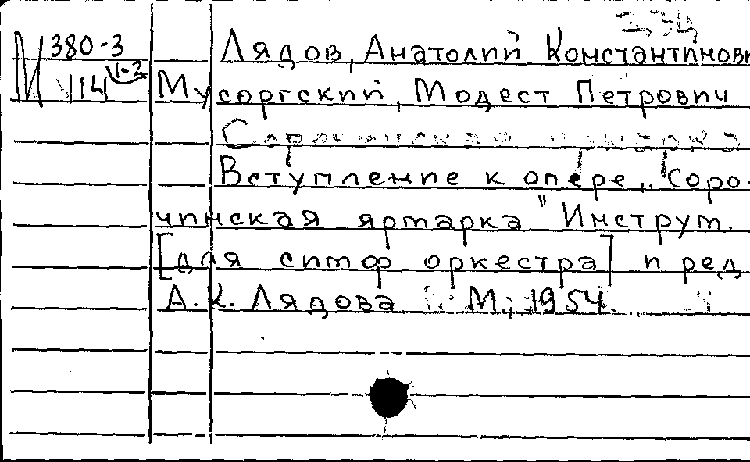 М 380-3 Лядов, Анатолий Константинови
Мусоргский, Модест Петрович
Сорочинская ярмарка
Вступление к опере „Соро-
чинская ярмарка" Инструм.
[для симф оркестра] и ред
А. К. Лядова М., 1954.